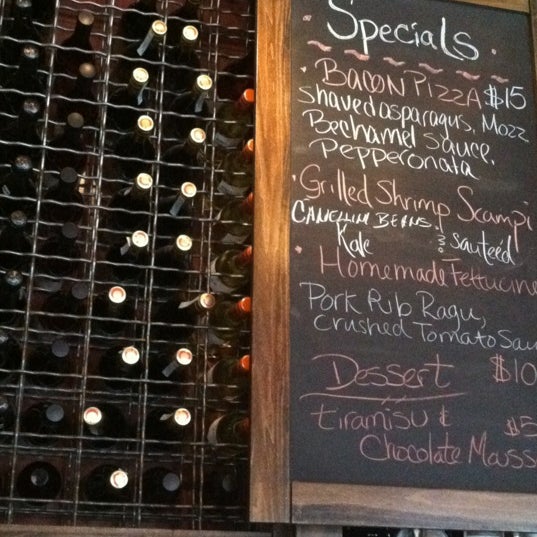 Specials
· Bacon Pizza $15
shaved asparagus, Mozz
Bechamel sauce,
Pepperonata
· Grilled Shrimp Scampi
Canellini Beans,
Kale & Sauteéd
· Homemade Fettucine
Pork Rib Ragu,
Crushed Tomato Sau
Dessert $10
tiramisu & $5
Chocolate Mouss